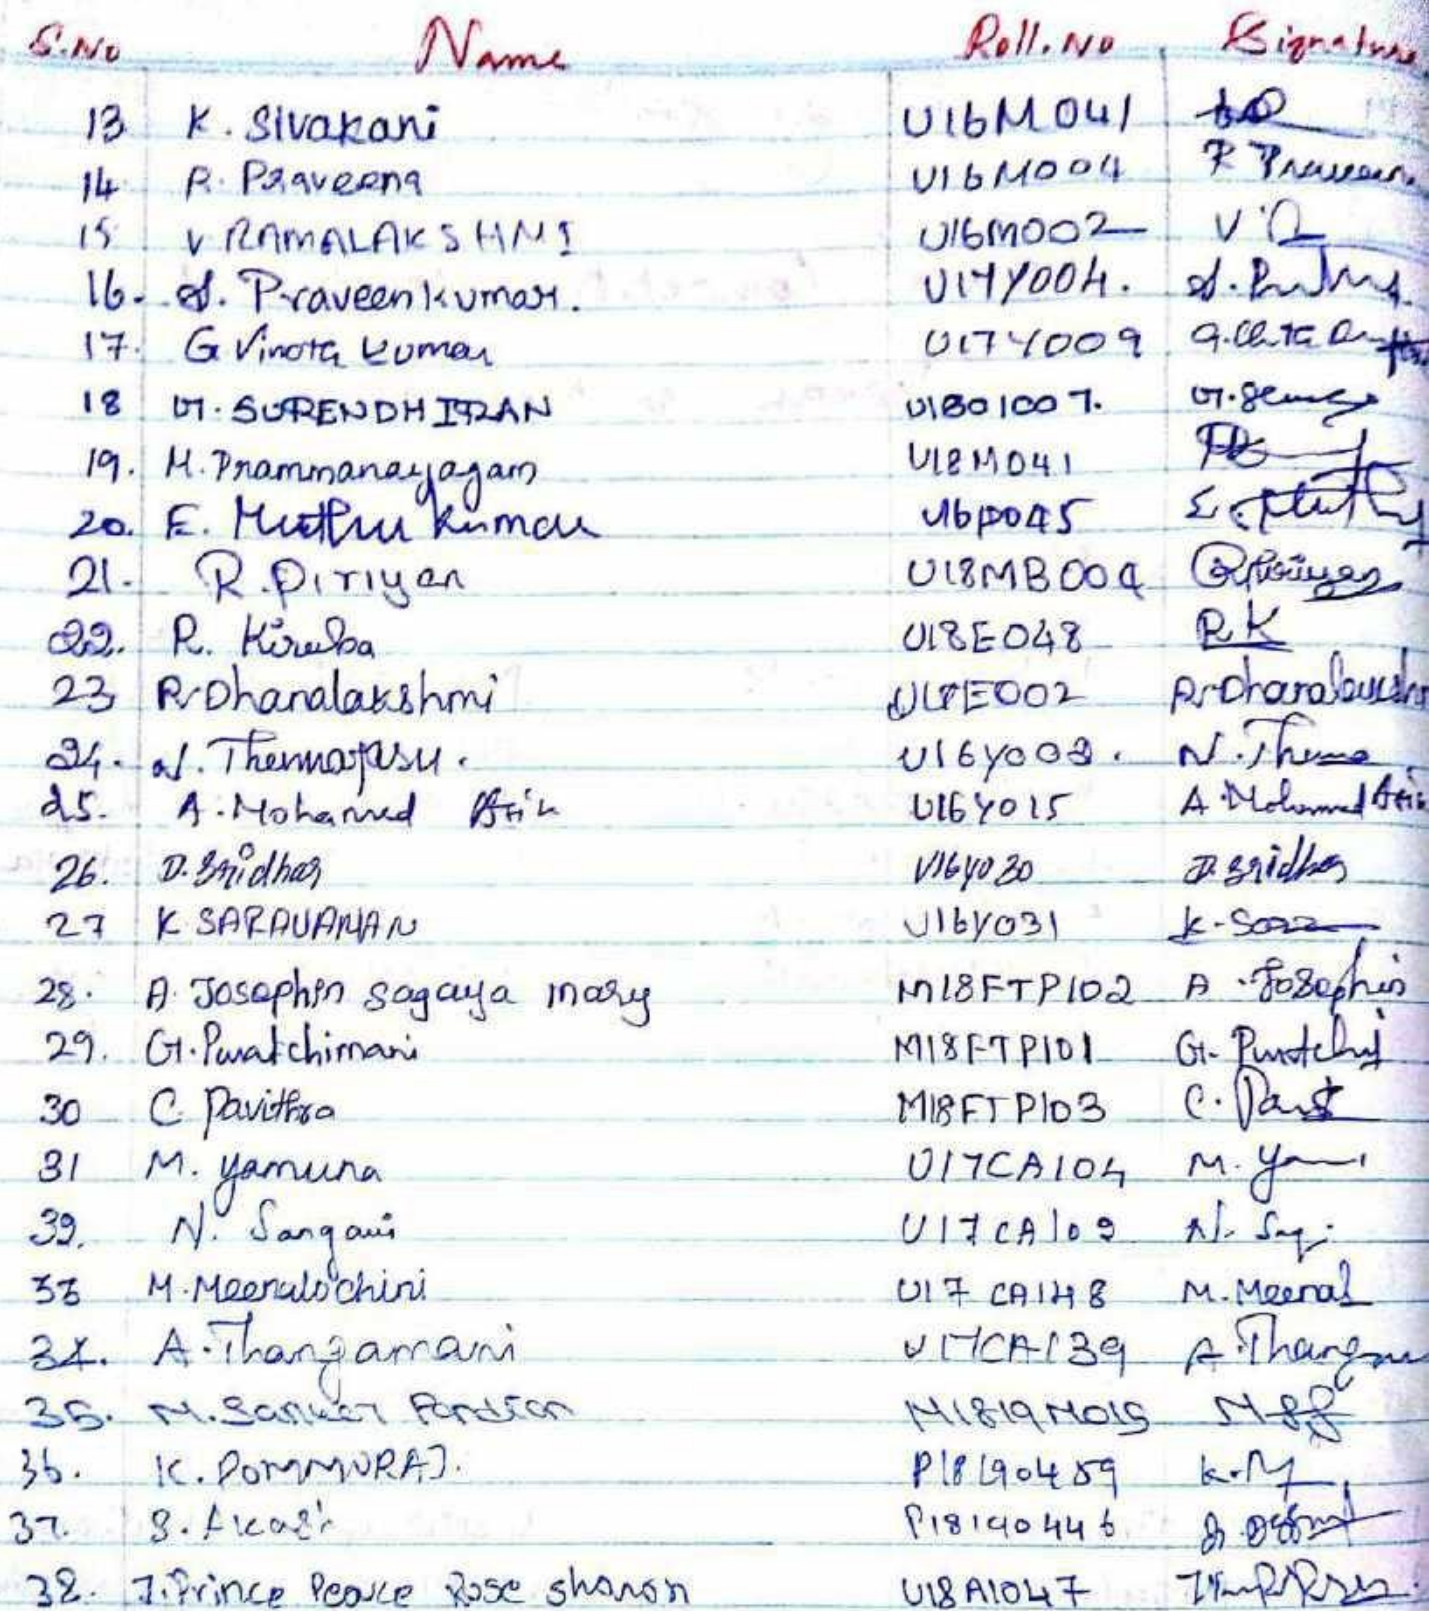 S.No Name Roll.No Signature
13 K. Sivakani U16M041
14 P. Praveena U16M004 P Praveen
15 V RAMALAKSHMI U16M002 V.R
16. S. Praveenkumar. U17Y004.
17. G Vinoth Kumar U17Y009
18 G. SURENDHIRAN U18O1007.
19. M. Prammanayagam U18M041
20. E. Muthu Kumar U16P045
21. R. Piriyan U18MB004 R Piriyan
22. R. Kiruba U18E048 R K
23 R. Dhanalakshmi U18E002 R. Dhanalakshmi
24. N. U16Y008. N. Thenna
25. A. Mohamed Asik U16Y015 A Mohamed Asik
26. D. Sridhar U16Y030 D. Sridhar
27 K SARAVANAN U16Y031 K. Sara
28. A. Josephin sagaya mary M18FTP102 A. Josephin
29. G. Puratchimani M18FTP101 G. Puratchi
30 C. Pavithra M18FTP103 C. Pavi
31 M. yamuna U17CA104 M. Yam
32. N. Sangavi U17CA109
33 M. Meenalochini U17CA148 M. Meenal
34. A. Thangamani U17CA139 A. Thangam
35. M. Sankar Pandian M1819M015
36. K. PONMURAJ. P18190459
37. S. Akash P18190446
38. J. Prince Pearce Rose sharon U18A1047